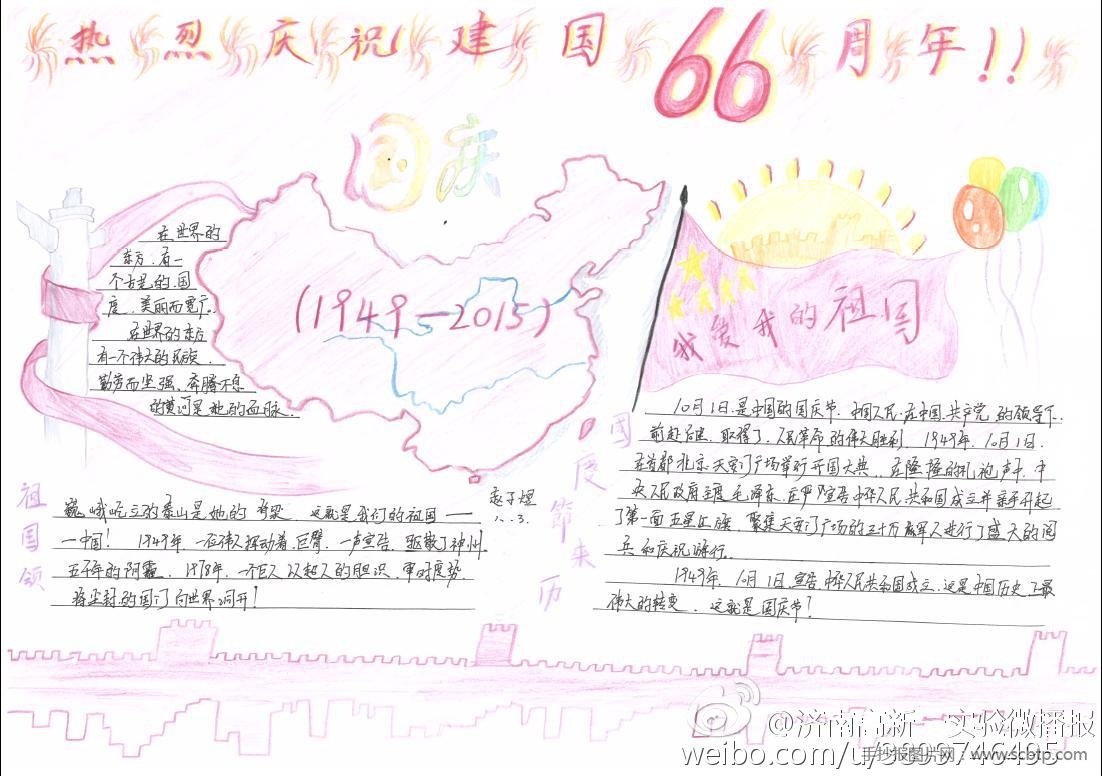 热烈庆祝建国66周年!!
国庆
(1949—2015)
我爱我的祖国
在世界的
东方,有一
个古老的国
度,美丽而宽广。
在世界的东方
有一个伟大的民族,
勤劳而坚强,奔腾不息
的黄河是她的血脉,
巍峨屹立的泰山是她的脊梁,这就是我们的祖国——
—中国! 1949年,一位伟人挥动着巨臂,一声宣告,驱散了神州
五千年的阴霾,1978年,一个巨人以超人的胆识,审时度势,
将尘封的国门向世界洞开!
祖国颂
国庆節来历
10月1日是中国的国庆节,中国人民在中国共产党的领导下,
前赴后继,取得了人民革命的伟大胜利,1949年,10月1日,
在首都北京天安门广场举行开国大典,在隆隆的礼炮声中,中
央人民政府主席毛泽东在宣告中华人民共和国成立并亲手升起
了第一面五星红旗,聚集天安门广场的三十万军人进行了盛大的阅
兵和庆祝游行。
1949年,10月1日,宣告中华人民共和国成立,这是中国历史上最
伟大的转变,这就是国庆节!
@济南高新一实验微播报
weibo.com/u/
手抄报图片网:www.scbtp.com